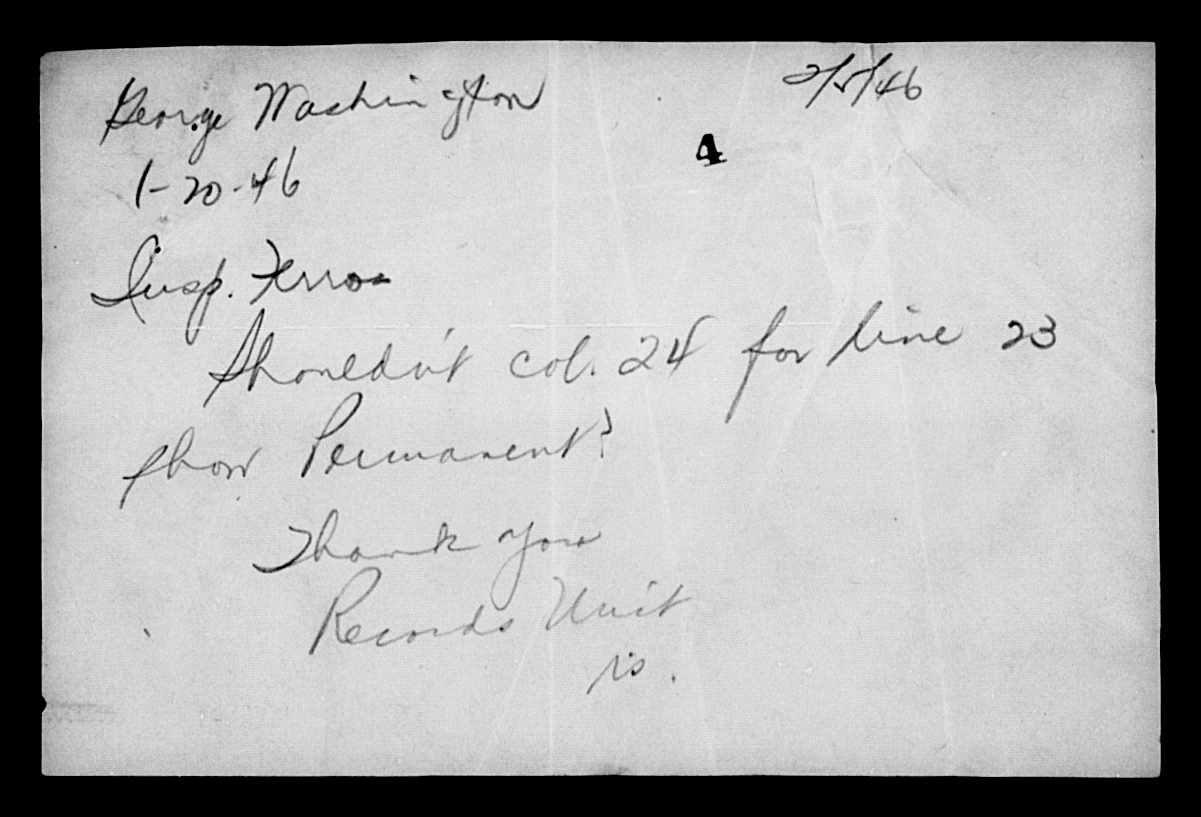 George Washington
2/5/46
4
1-20-46
Insp. Ferro
Shouldn't col. 24 for line 23
show Permanent?
Thank you
Records Unit
is.